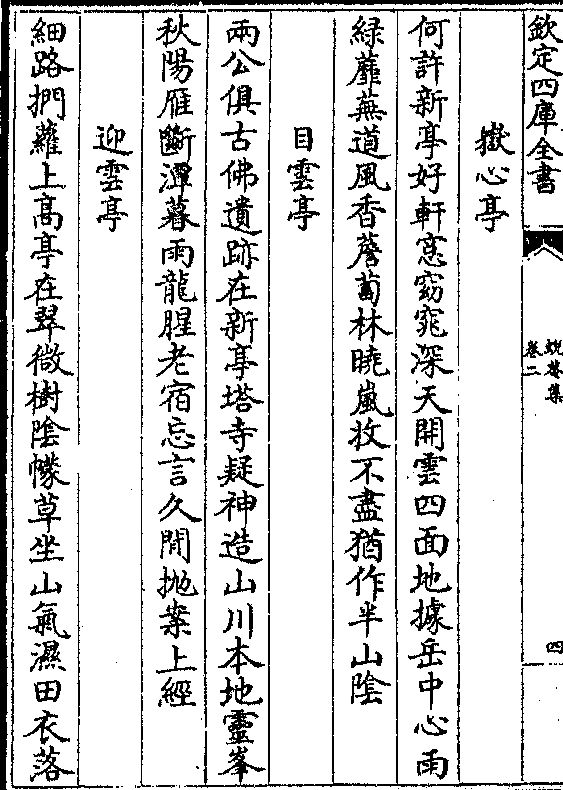 欽定四庫全書
蛻菴集
卷二
四
嶽心亭
何許新亭好軒窓窈窕深天開雲四面地據岳中心雨
綠蘼蕪道風香薝蔔林曉嵐收不盡猶作半山陰
目雲亭
兩公俱古佛遺跡在新亭塔寺疑神造山川本地靈峯
秋陽雁斷潭暮雨龍腥老宿忘言久閒拋案上經
迎雲亭
細路捫蘿上高亭在翠微樹陰幪草坐山氣濕田衣落